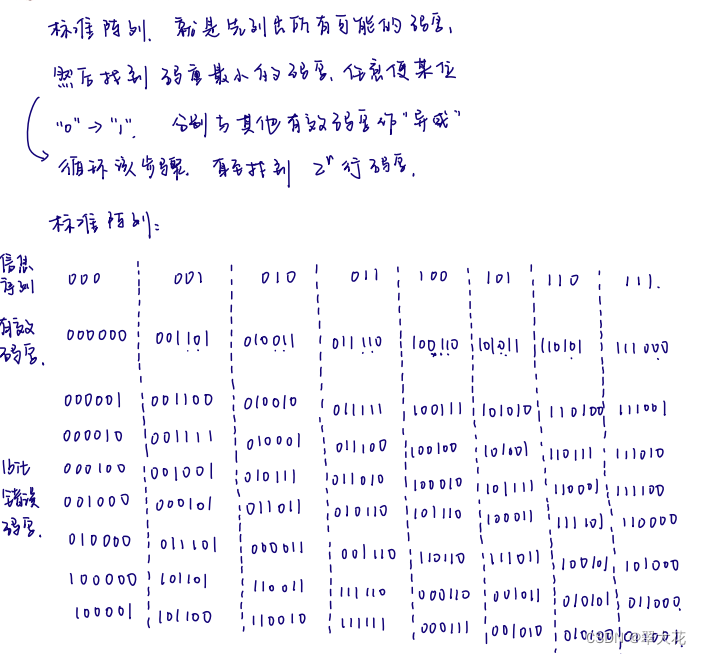 标准阵列. 就是先列出所有可能的码字,
然后找到码重最小的码字. 任意使某位
"0"→"1". 分别与其他有效码字作"异或"
循环该步骤. 直至找到 2ⁿ行码字.
标准阵列:
信息序列 000 001 010 011 100 101 110 111.
有效码字. 000000 001101 010011 011110 100110 101011 110101 111000
000001 001100 010010 011111 100111 101010 110100 111001
000010 001111 010001 011100 100100 101001 110111 111010
1bit 000100 001001 010111 011010 100010 101111 110001 111100
错误 001000 000101 011011 010110 101110 100011 111101 110000
码字. 010000 011101 000011 001110 110110 111011 100101 101000
100000 101101 110011 111110 000110 001011 010101 011000.
100001 101100 110010 111111 000111 001010 010100
CSDN @翠大花